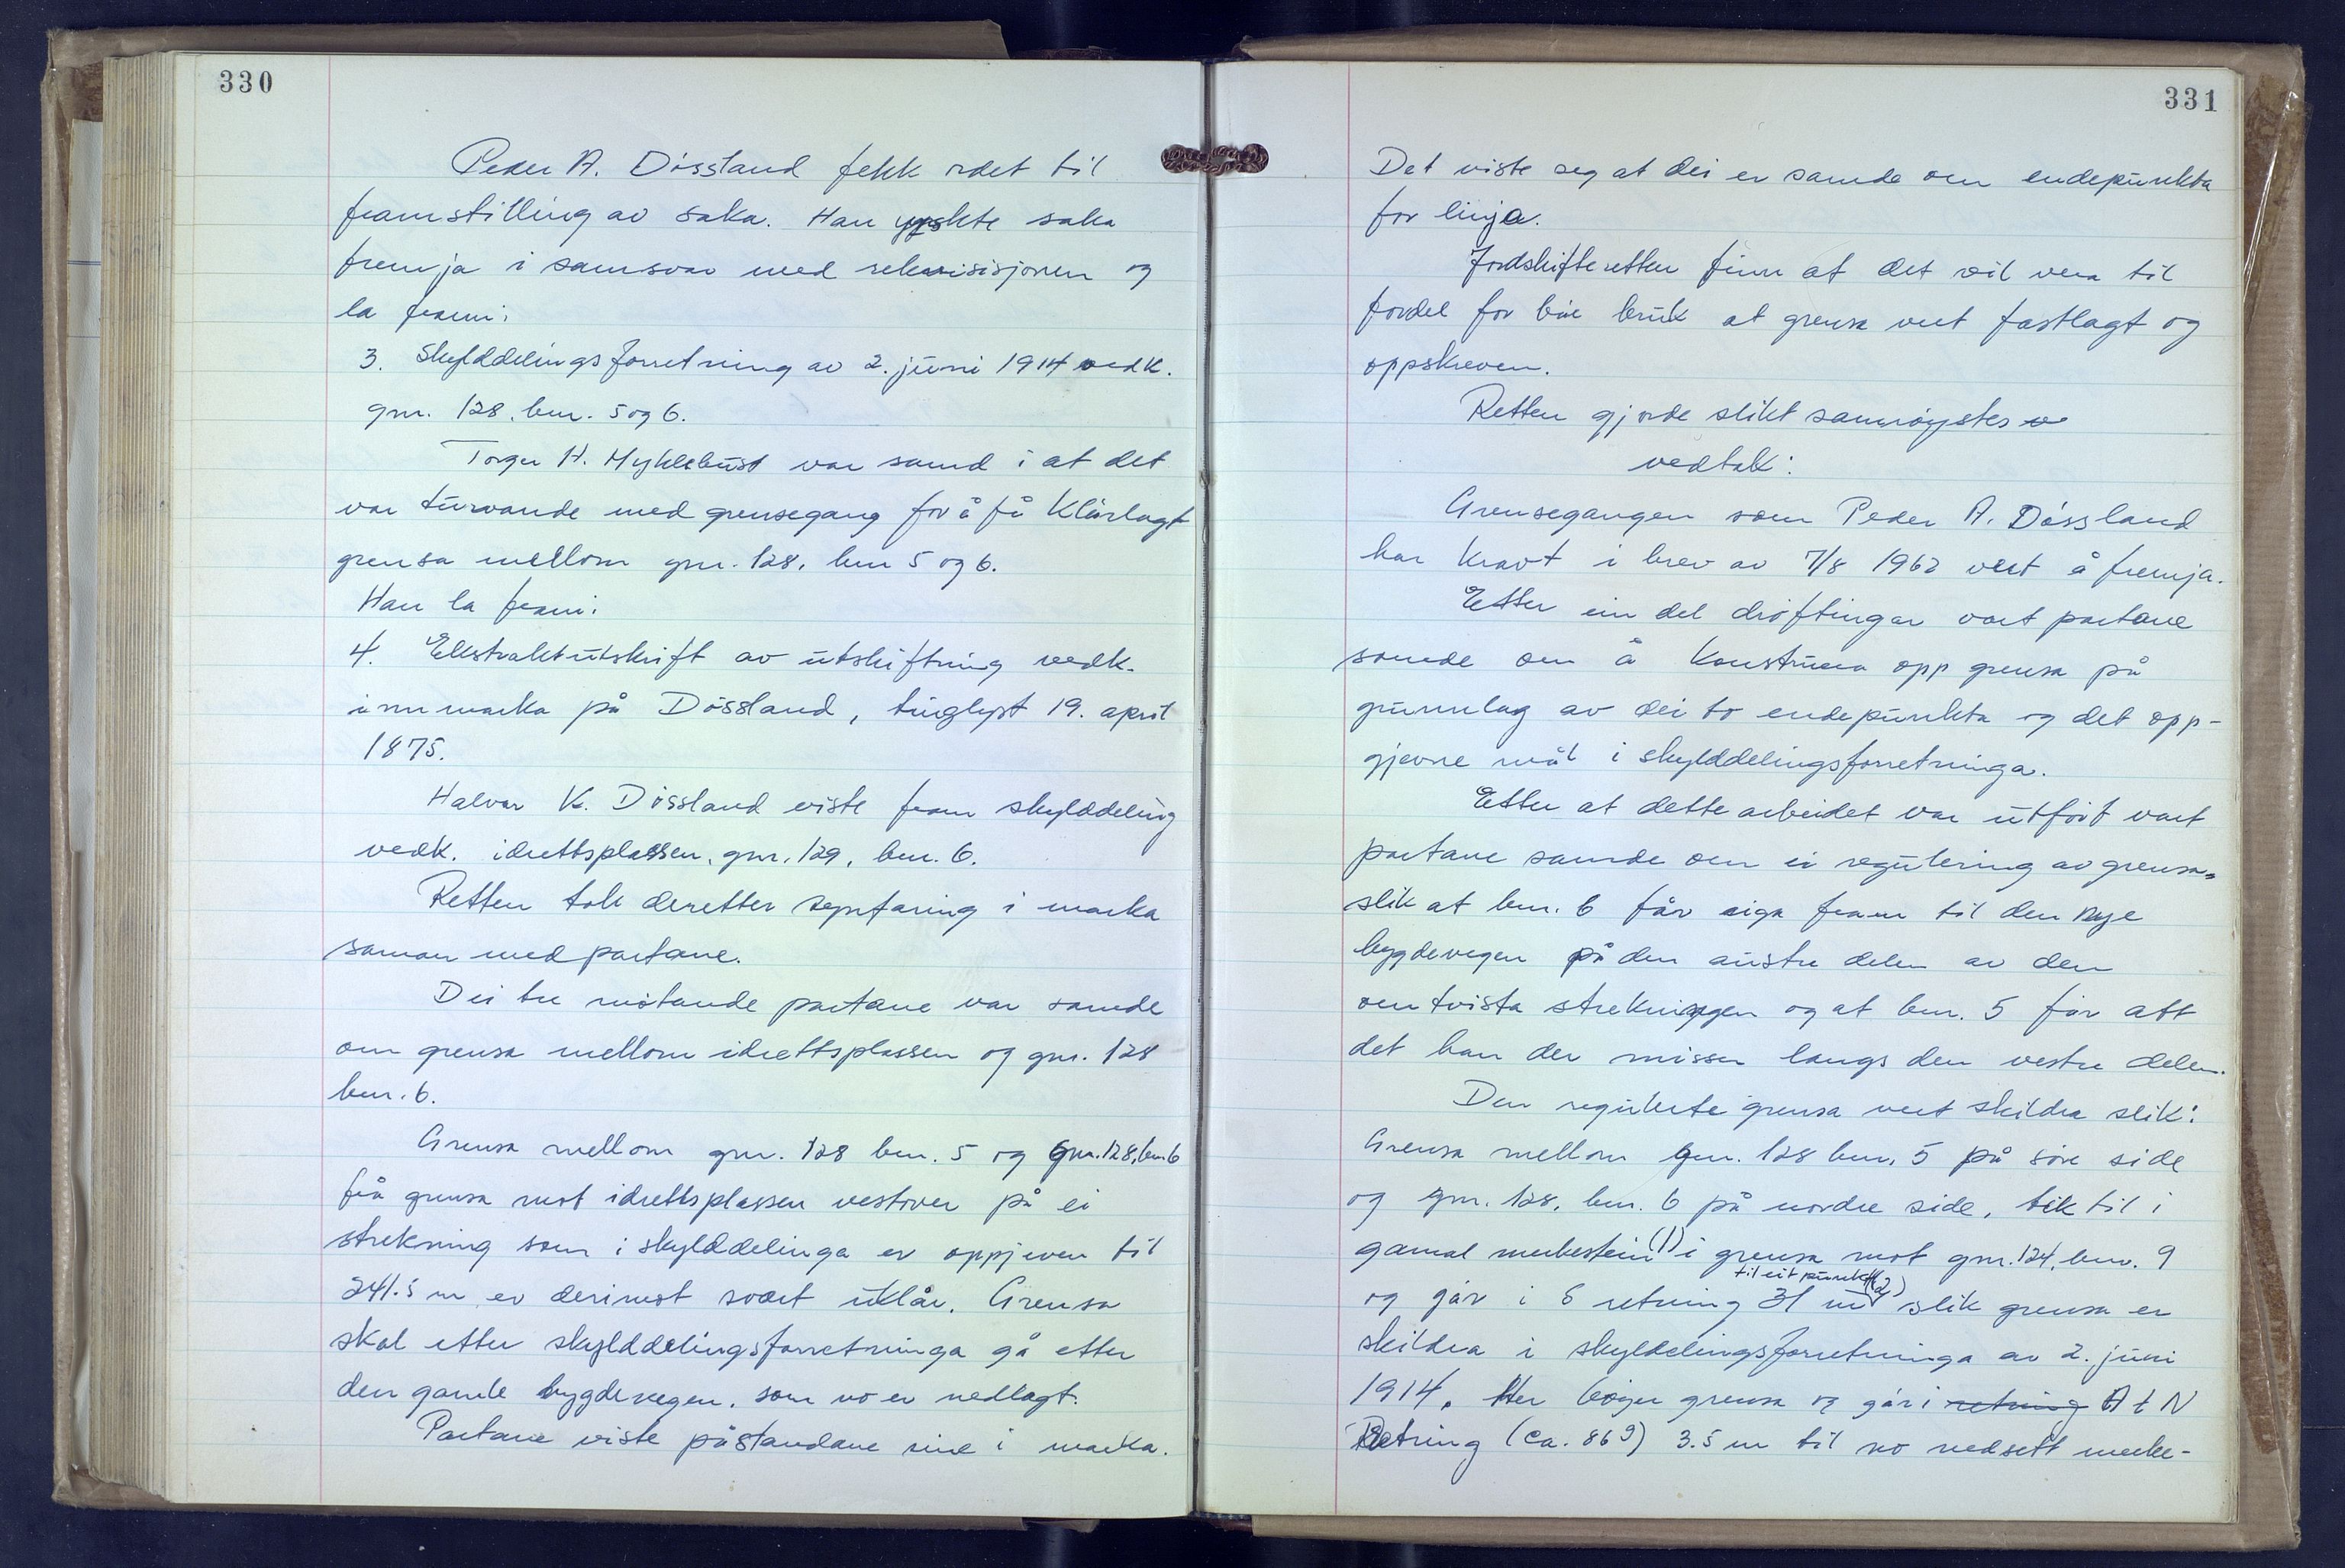 330
Peder A. Døssland fekk ordet til
framstilling av saka. Han ynskte saka
fremja i samsvar med rekvisisjonen og
la fram:
3. Skylddelingsforretning av 2. juni 1914 vedk.
gnr. 128, bnr. 5 og 6.
Torger H. Myklebust var samd i at det
var turvande med grensegang for å få klårlagt
grensa mellom gnr. 128, bnr 5 og 6.
Han la fram:
4. Ekstraktutskrift av utskiftning vedk.
innmarka på Døssland, tinglyst 19. april
1875.
Halvor K. Døssland viste fram skylddeling
vedk. idrettsplassen, gnr. 129, bnr. 6.
Retten tok deretter synfaring i marka
saman med partane.
Dei tre møtande partane var samde
om grensa mellom idrettsplassen og gnr. 128
bnr. 6.
Grensa mellom gnr. 128 bnr. 5 og gnr. 128, bnr 6
frå grensa mot idrettsplassen vestover på ei
strekning som i skylddelinga er oppjeven til
241.5 m er derimot svært uklår. Grensa
skal etter skylddelingsforretninga gå etter
den gamle bygdevegen, som no er nedlagt.
Partane viste påstandane sine i marka.
331
Det viste seg at dei er samde om endepunkta
for linja.
Jordskifteretten finn at det vil vera til
fordel for båe bruk at grensa vert fastlagt og
oppskreven.
Retten gjorde slikt samrøystes
vedtak:
Grensegangen som Peder A. Døssland
har kravt i brev av 7/8 1962 vert å fremja.
Etter ein del drøftingar vart partane
samde om å konstruera opp grensa på
grunnlag av dei to endepunkta og det opp-
gjevne mål i skylddelingsforretninga.
Etter at dette arbeidet var utført vart
partane samde om ei regulering av grensa,
slik at bnr. 6 får eiga fram til den nye
bygdevegen på den austre delen av den
omtvista strekningen og at bnr. 5 får att
det han der misser langs den vestre delen.
Den regulerte grensa vert skildra slik:
Grensa mellom gnr. 128 bnr. 5 på søre side
og gnr. 128, bnr. 6 på nordre side, tek til i
gamal merkestein (1) i grensa mot gnr. 124, bnr. 9
til eit punkt (2)
og går i S retning 31 m slik grensa er
skildra i skyldelingsforretninga av 2. juni
1914. Her bøyer grensa og går i retning A t N
Retning (ca. 86 g) 3.5 m til no nedsett merke-